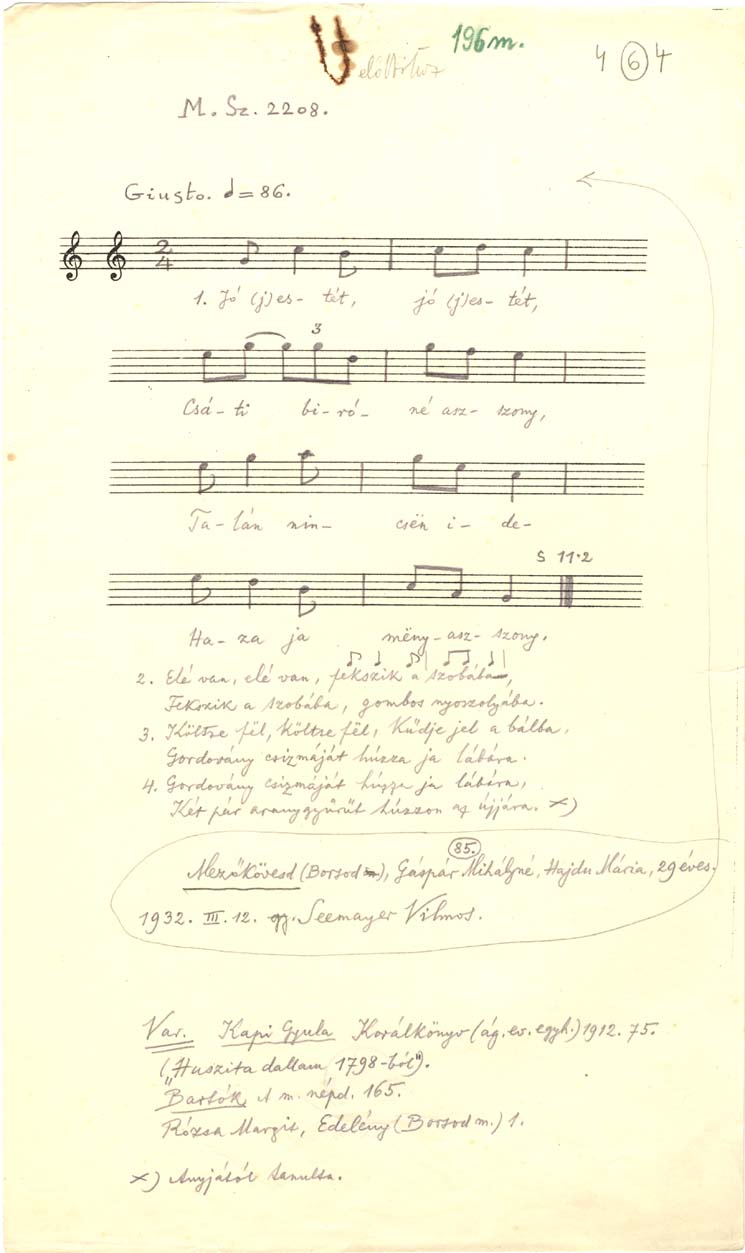 196 m.
4 6 4
M. Sz. 2208.
Giusto. ♩= 86.
2/4
1. Jó (j)es- tét, jó (j)es- tét,
3
Csá- ti bi- ró- né asz- szony,
Ta- lán nin- csën i- de-
S 11·2
Ha- za ja mëny- asz- szony.
2. Elé van, elé van, fekszik a szobába,
Fekszik a szobába, gombos nyoszolyába.
3. Költse fël, költse fël, Küdje jel a bálba.
Gordovány csizmáját húzza ja lábára.
4. Gordovány csizmáját húzza ja lábára,
Két pár aranygyűrűt húzzon az újjára. x)
85.
Mezőkövesd (Borsod m), Gáspár Mihályné, Hajdu Mária, 29 éves.
1932. III. 12. gy. Seemayer Vilmos.
Var. Kapi Gyula Korálkönyv (ág. ev. egyh.) 1912. 75.
("Huszita dallam 1798-ból").
Bartók A m. népd. 165.
Rózsa Margit, Edelény (Borsod m.) 1.
x) Anyjától tanulta.